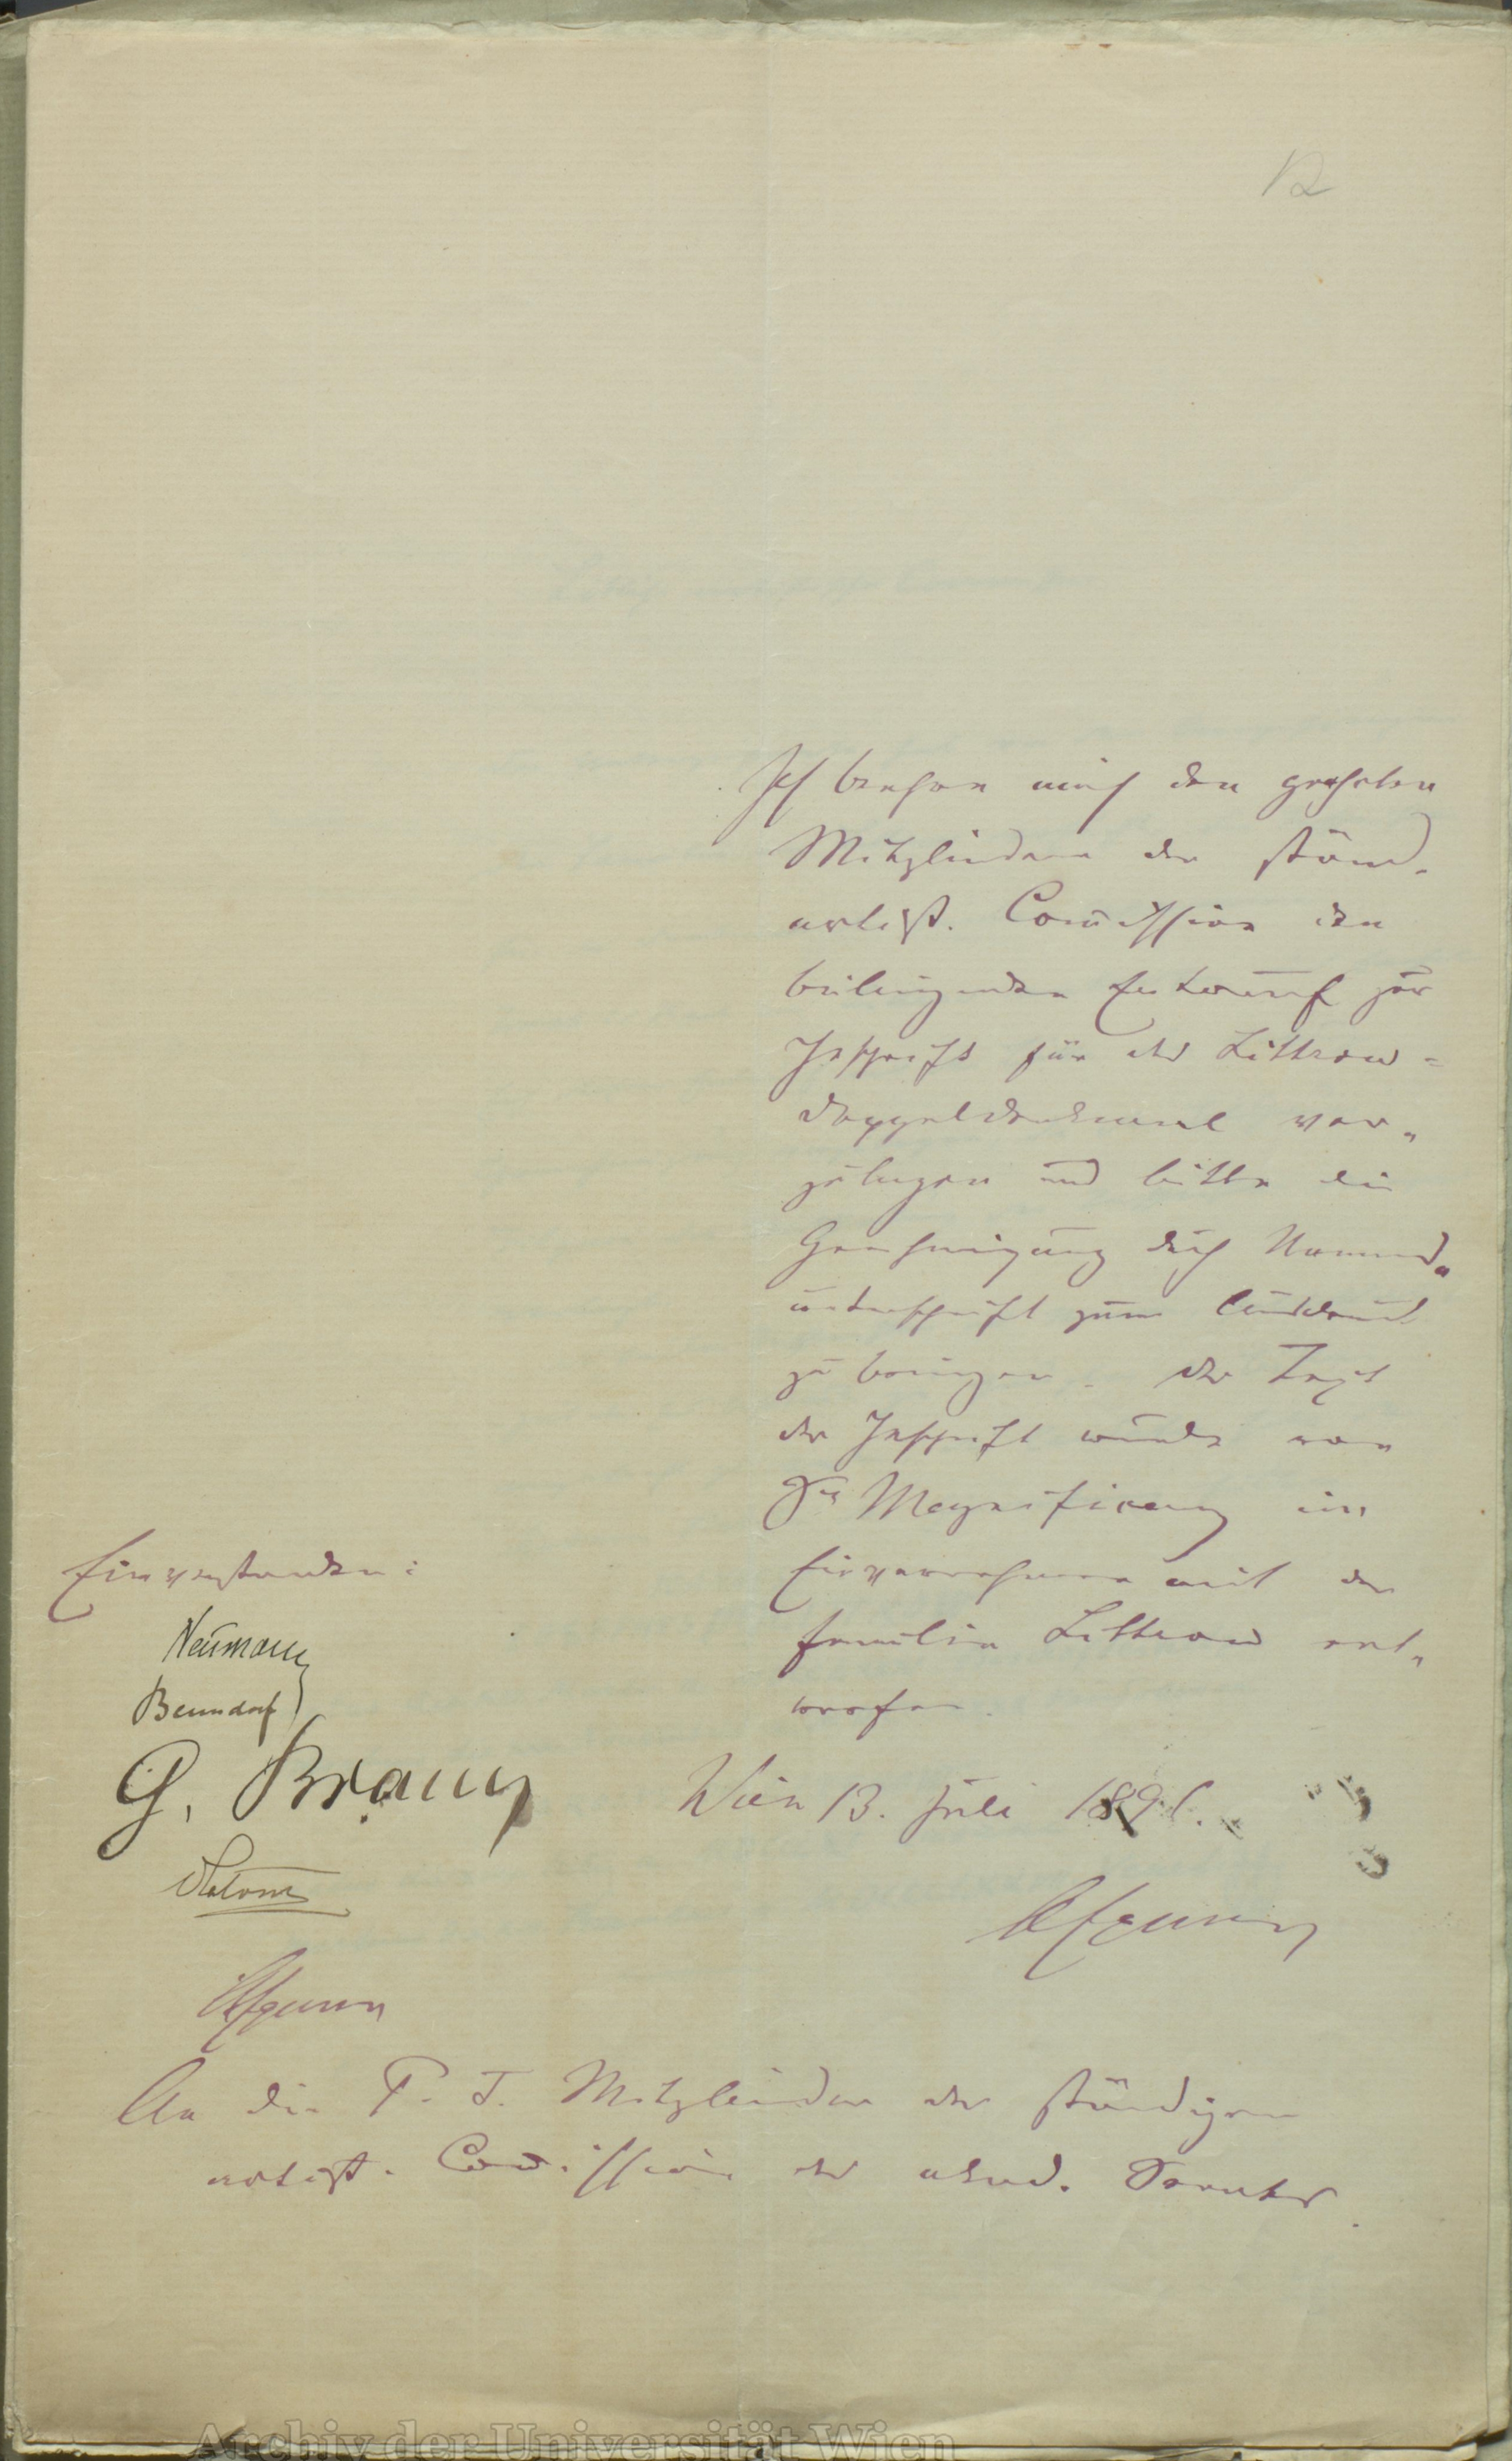 12
Ich beehre mich den geehrten
Mitgliedern der ständ.
artist. Commission den
beiliegenden Entwurf zur
Inschrift für das Littrow=
Doppeldenkmal vor„
zulegen und bitte die
Genehmigung durch Namens„
unterschrift zum Ausdruck
zu bringen. Der Text
der Inschrift wurde von
Sr Magnificenz im
Einvernehmen mit der
Familie Littrow ent„
worfen.
Wien 13. Juli 1891.
Einverstanden:
Neumann
Benndorf
G. Braun
An die P. T. Mitglieder der ständigen
artist. Commission des akad. Senates.
Archiv der Universität Wien